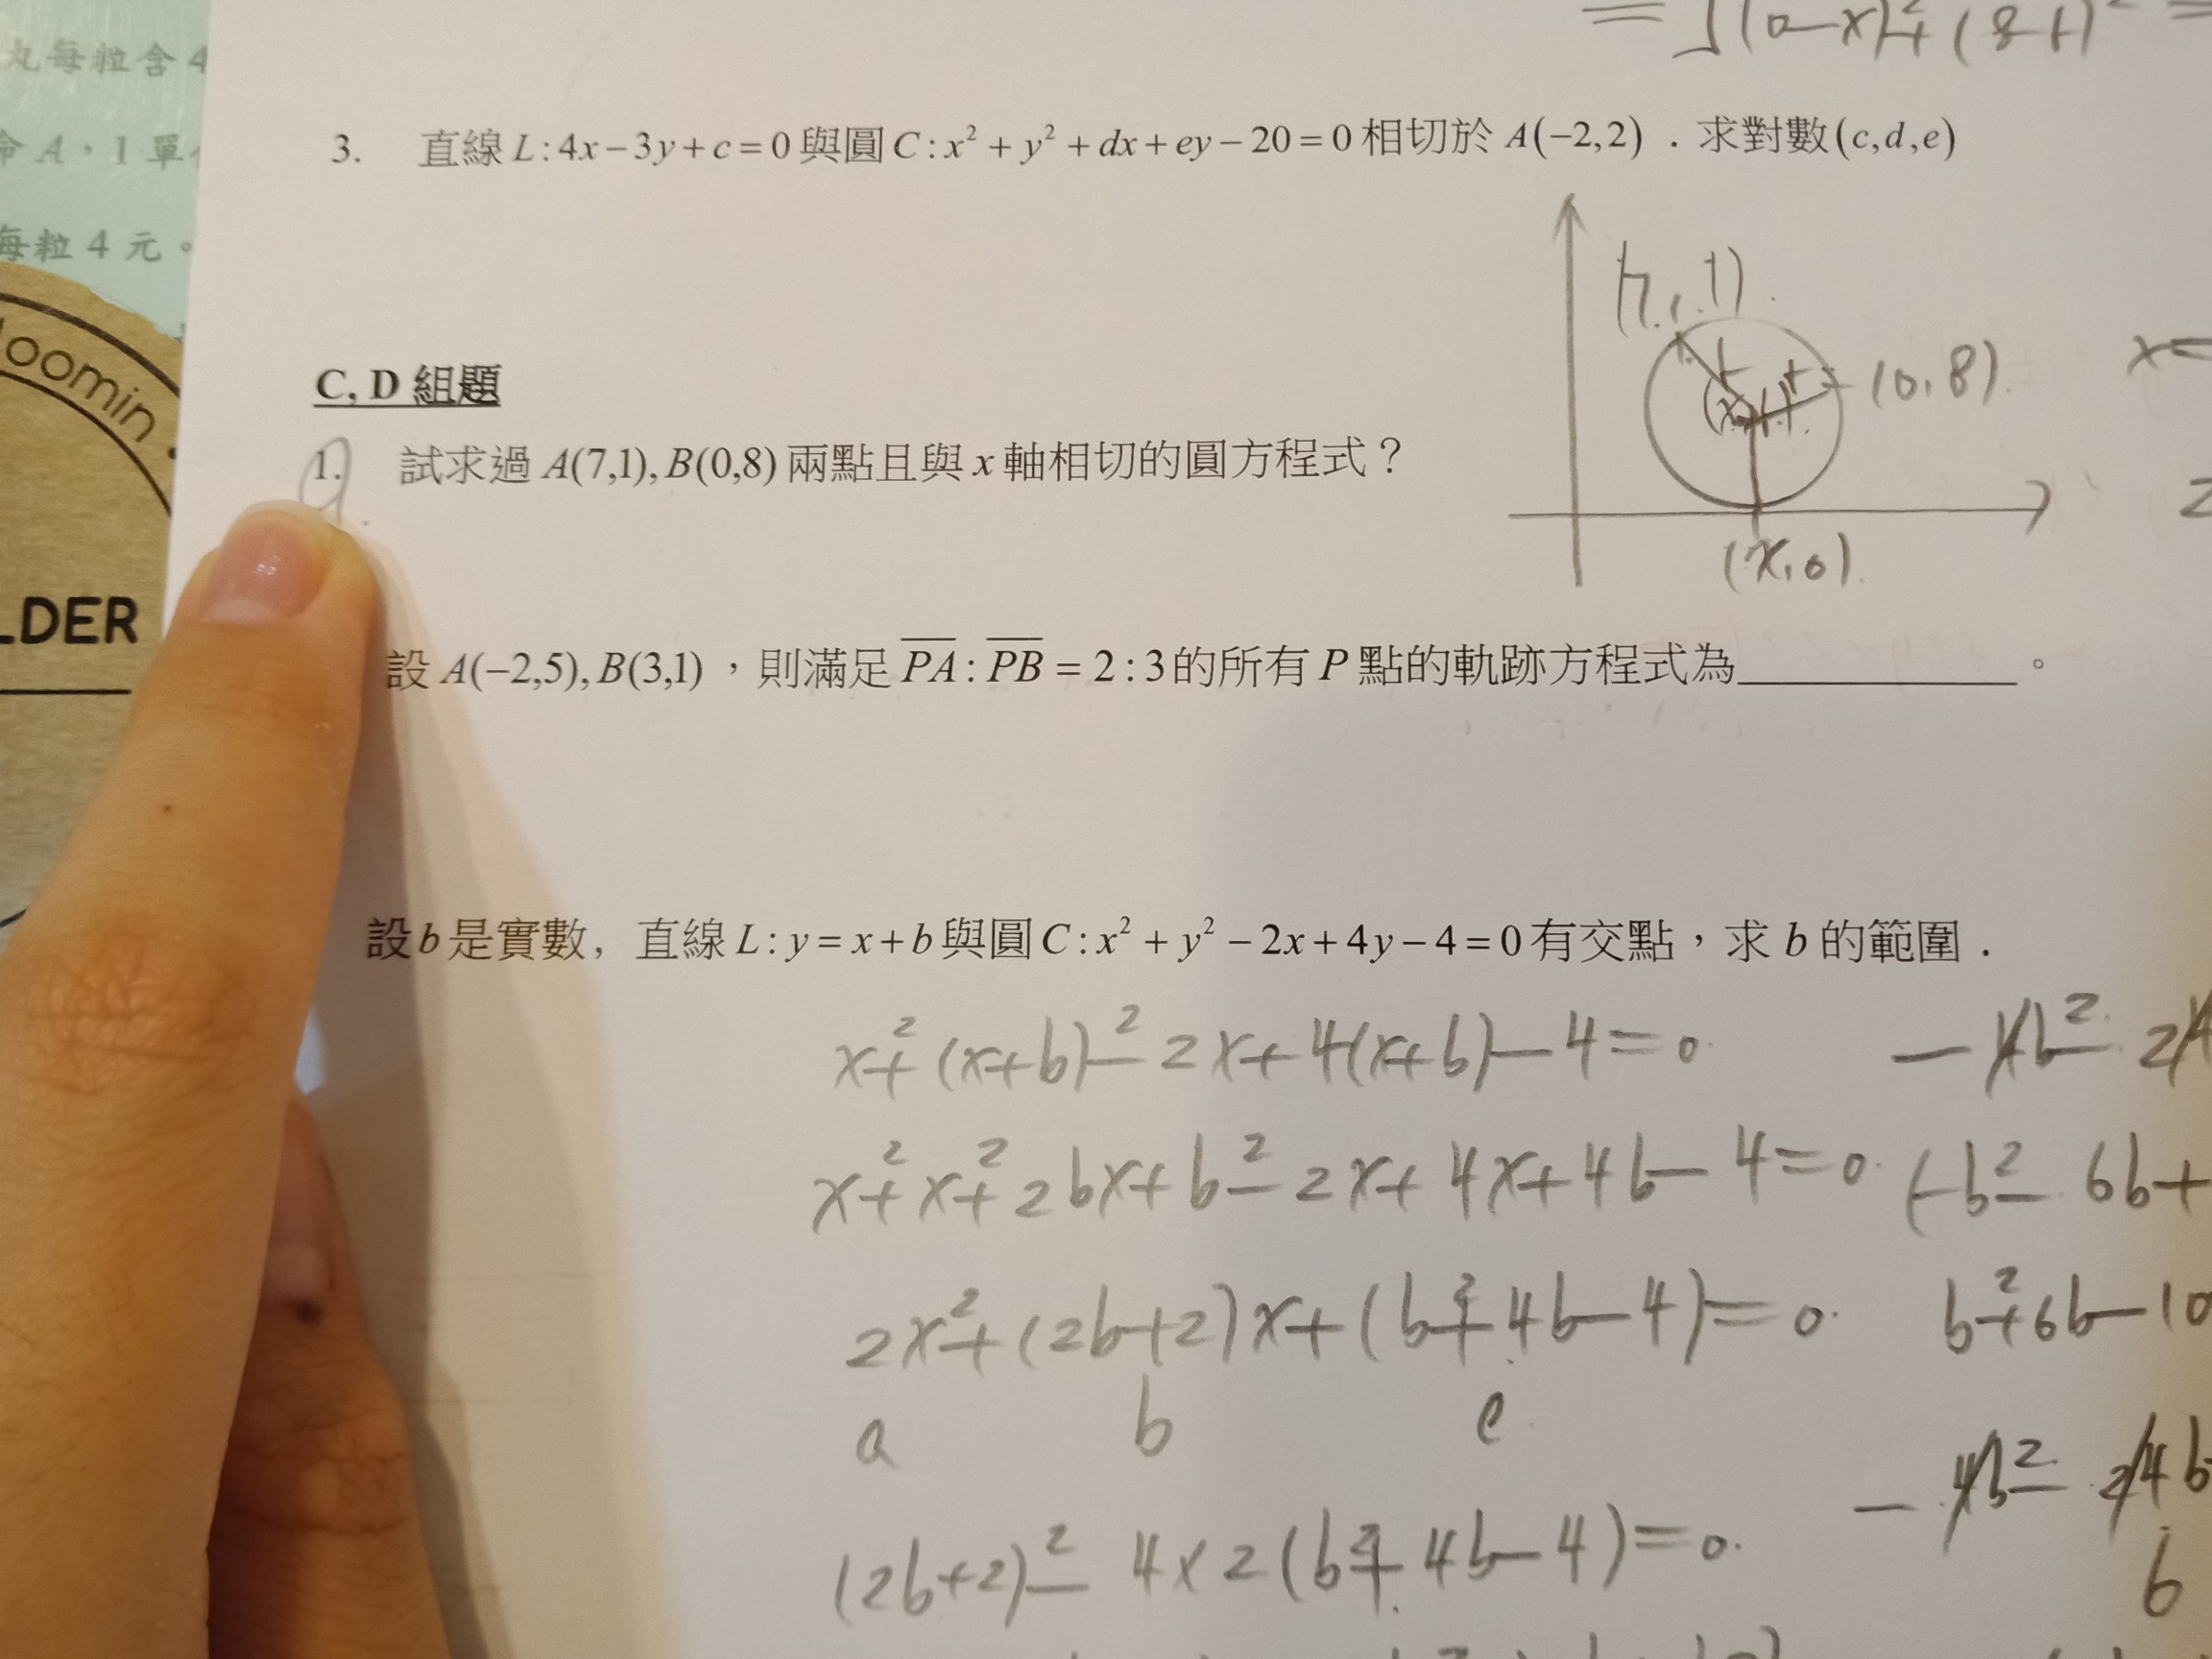 丸每粒含4
命A，1單
每粒4元。
loomin
LDER
= √(0-x)²+(8-t)² =
3. 直線 L:4x-3y+c=0 與圓 C:x²+y²+dx+ey-20=0 相切於 A(-2,2)．求對數(c,d,e)
(7,1)
(0,8)
(x,0)
C, D 組題
1. 試求過 A(7,1), B(0,8) 兩點且與 x 軸相切的圓方程式？
設 A(-2,5), B(3,1)，則滿足 P̅A̅ : P̅B̅ = 2:3 的所有 P 點的軌跡方程式為____________。
設 b 是實數, 直線 L: y = x+b 與圓 C: x²+y²-2x+4y-4=0 有交點，求 b 的範圍．
x²+(x+b)²-2x+4(x+b)-4=0
x²+x²+2bx+b²-2x+4x+4b-4=0
2x²+(2b+2)x+(b²+4b-4)=0
a b c
(2b+2)²-4×2(b²+4b-4)=0
-4b²-24
(-b²-6b+
b²+6b-10
-4b²-24b
b